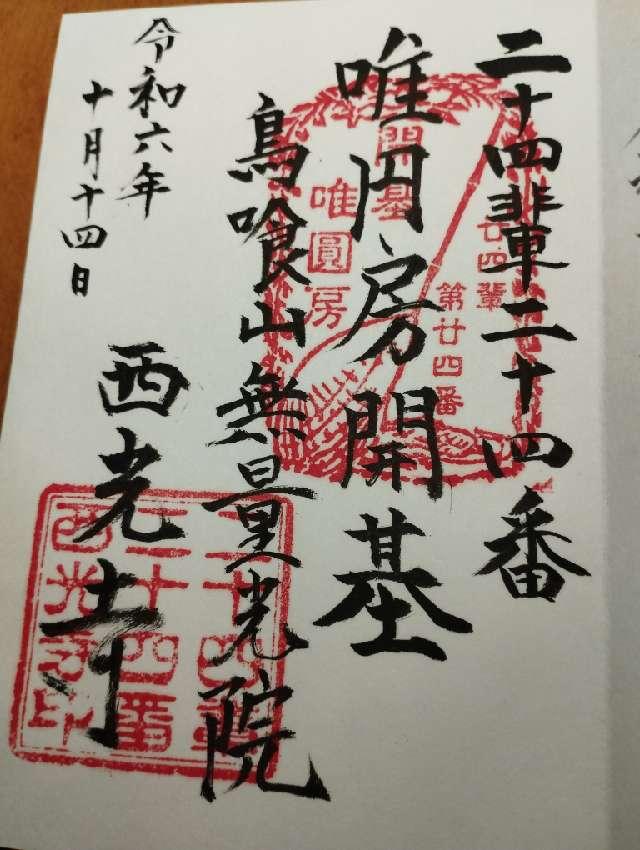 二十四輩二十四番
唯円房開基
鳥喰山無量光院
西光寺
令和六年
十月十四日
開基
唯圓房
廿四輩
第廿四番
二十四輩
二十四番
西光寺印